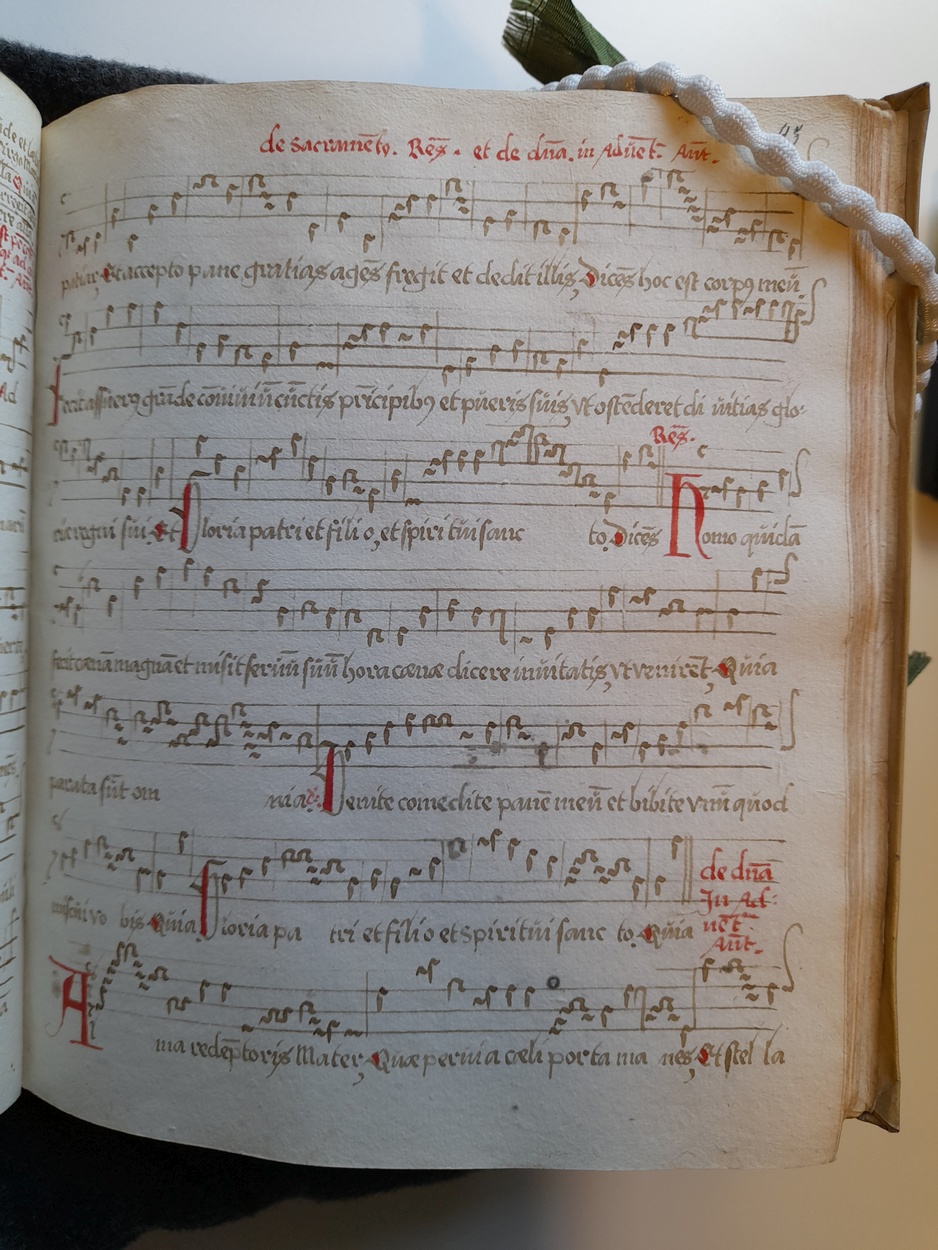 45
de sacramēto. Res. et de dn̄a. in Aduēt. Ant.
patiar, Et accepto pane gratias agēs fregit et dedit illis, Dicēs hoc est corpꝯ meū
Fecit assuerꝯ grāde cōuiuiū cūctis prīcipibꝯ et pueris suis, vt ostēderet di uitias glo-
Res.
rie regni sui. Et Gloria patri et fili o, et spiri tui sanc to. Dicēs Homo quidā
fecit cœnam magnā et misit seruū suū hora cœnæ dicere inuitatis, vt venirēt. Quia
parata sūt om nia. Venite comedite panē meū et bibite vinū quod
miscui vo bis. Quia. Gloria pa tri et fili o et spiritui sanc to. Quia
de dn̄a
In Ad-
uēt-
Ant.
Alma redēptoris Mater, Quæ peruia cœli porta ma nes, Et stel la